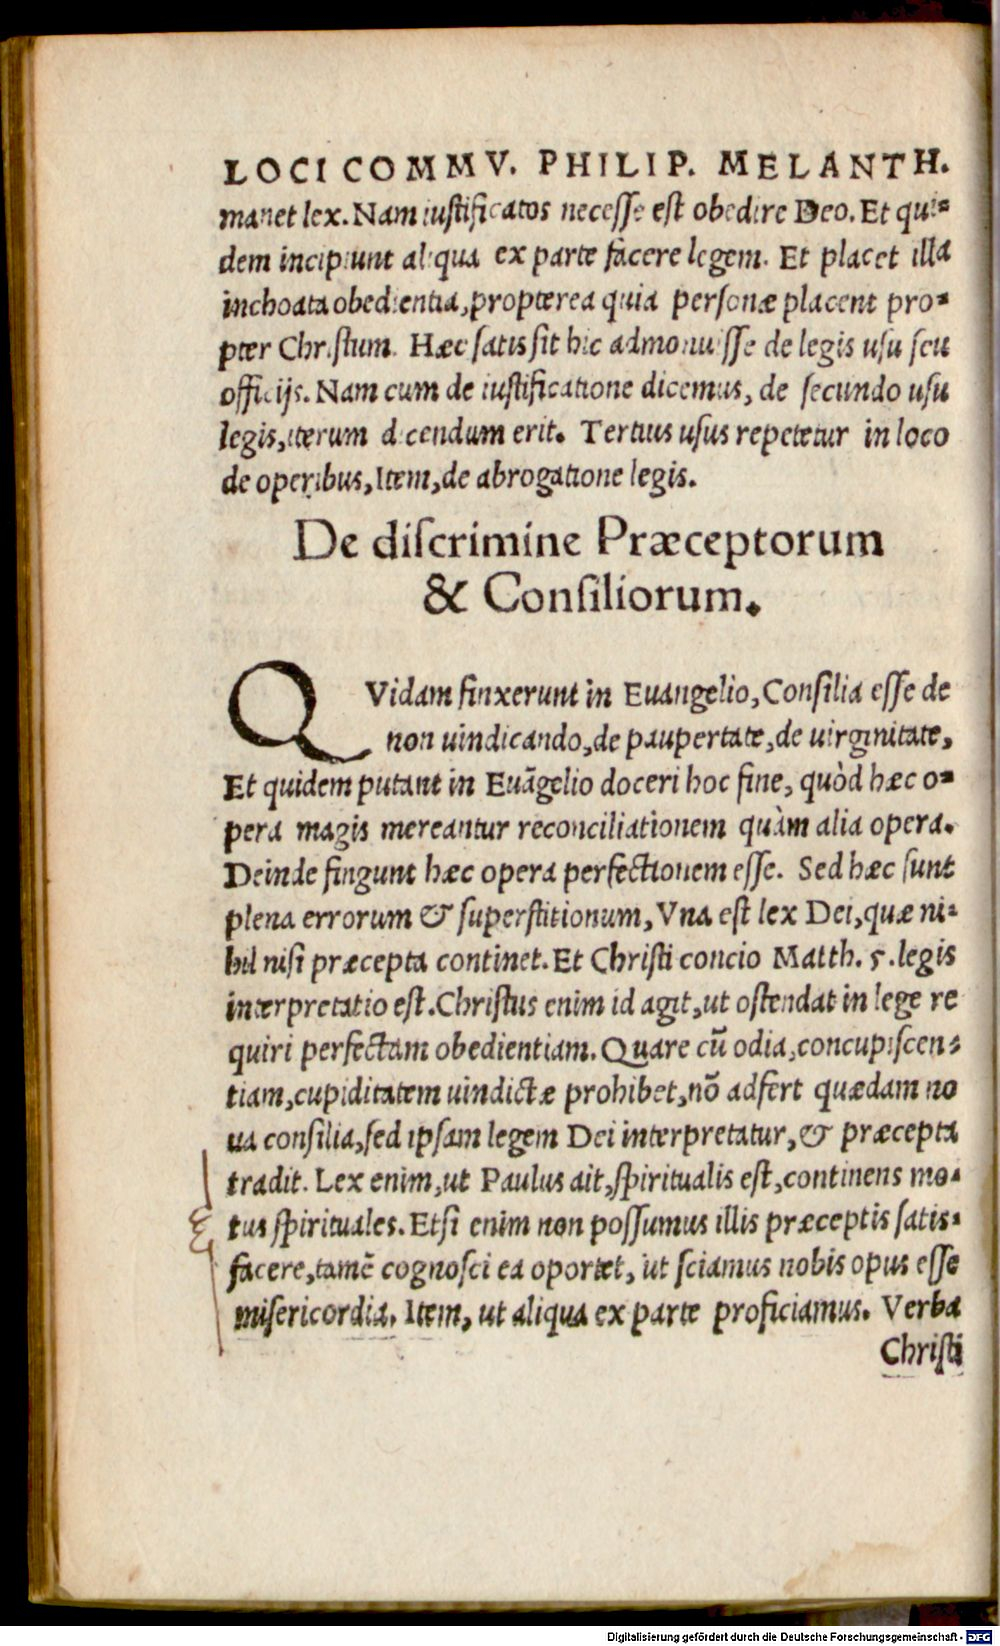 LOCI COMMV. PHILIP. MELANTH.
manet lex. Nam iustificatos necesse est obedire Deo. Et qui-
dem incipiunt aliqua ex parte facere legem. Et placet illa
inchoata obedientia, propterea quia personæ placent pro-
pter Christum. Hæc satis sit hic admonuisse de legis usu seu
officijs. Nam cum de iustificatione dicemus, de secundo usu
legis, iterum dicendum erit. Tertius usus repetetur in loco
de operibus, Item, de abrogatione legis.
De discrimine Præceptorum
& Consiliorum.
QVidam finxerunt in Euangelio, Consilia esse de
non uindicando, de paupertate, de uirginitate,
Et quidem putant in Euãgelio doceri hoc fine, quòd hæc o-
pera magis mereantur reconciliationem quàm alia opera.
Deinde fingunt hæc opera perfectionem esse. Sed hæc sunt
plena errorum & superstitionum, Vna est lex Dei, quæ ni-
hil nisi præcepta continet. Et Christi concio Matth. 5. legis
interpretatio est. Christus enim id agit, ut ostendat in lege re
quiri perfectam obedientiam. Quare cũ odia, concupiscen-
tiam, cupiditatem uindictæ prohibet, nõ adfert quædam no
ua consilia, sed ipsam legem Dei interpretatur, & præcepta
tradit. Lex enim, ut Paulus ait, spiritualis est, continens mo-
tus spirituales. Etsi enim non possumus illis præceptis satis-
facere, tamẽ cognosci ea oportet, ut sciamus nobis opus esse
misericordia. Item, ut aliqua ex parte proficiamus. Verba
Christi
Digitalisierung gefördert durch die Deutsche Forschungsgemeinschaft - DFG